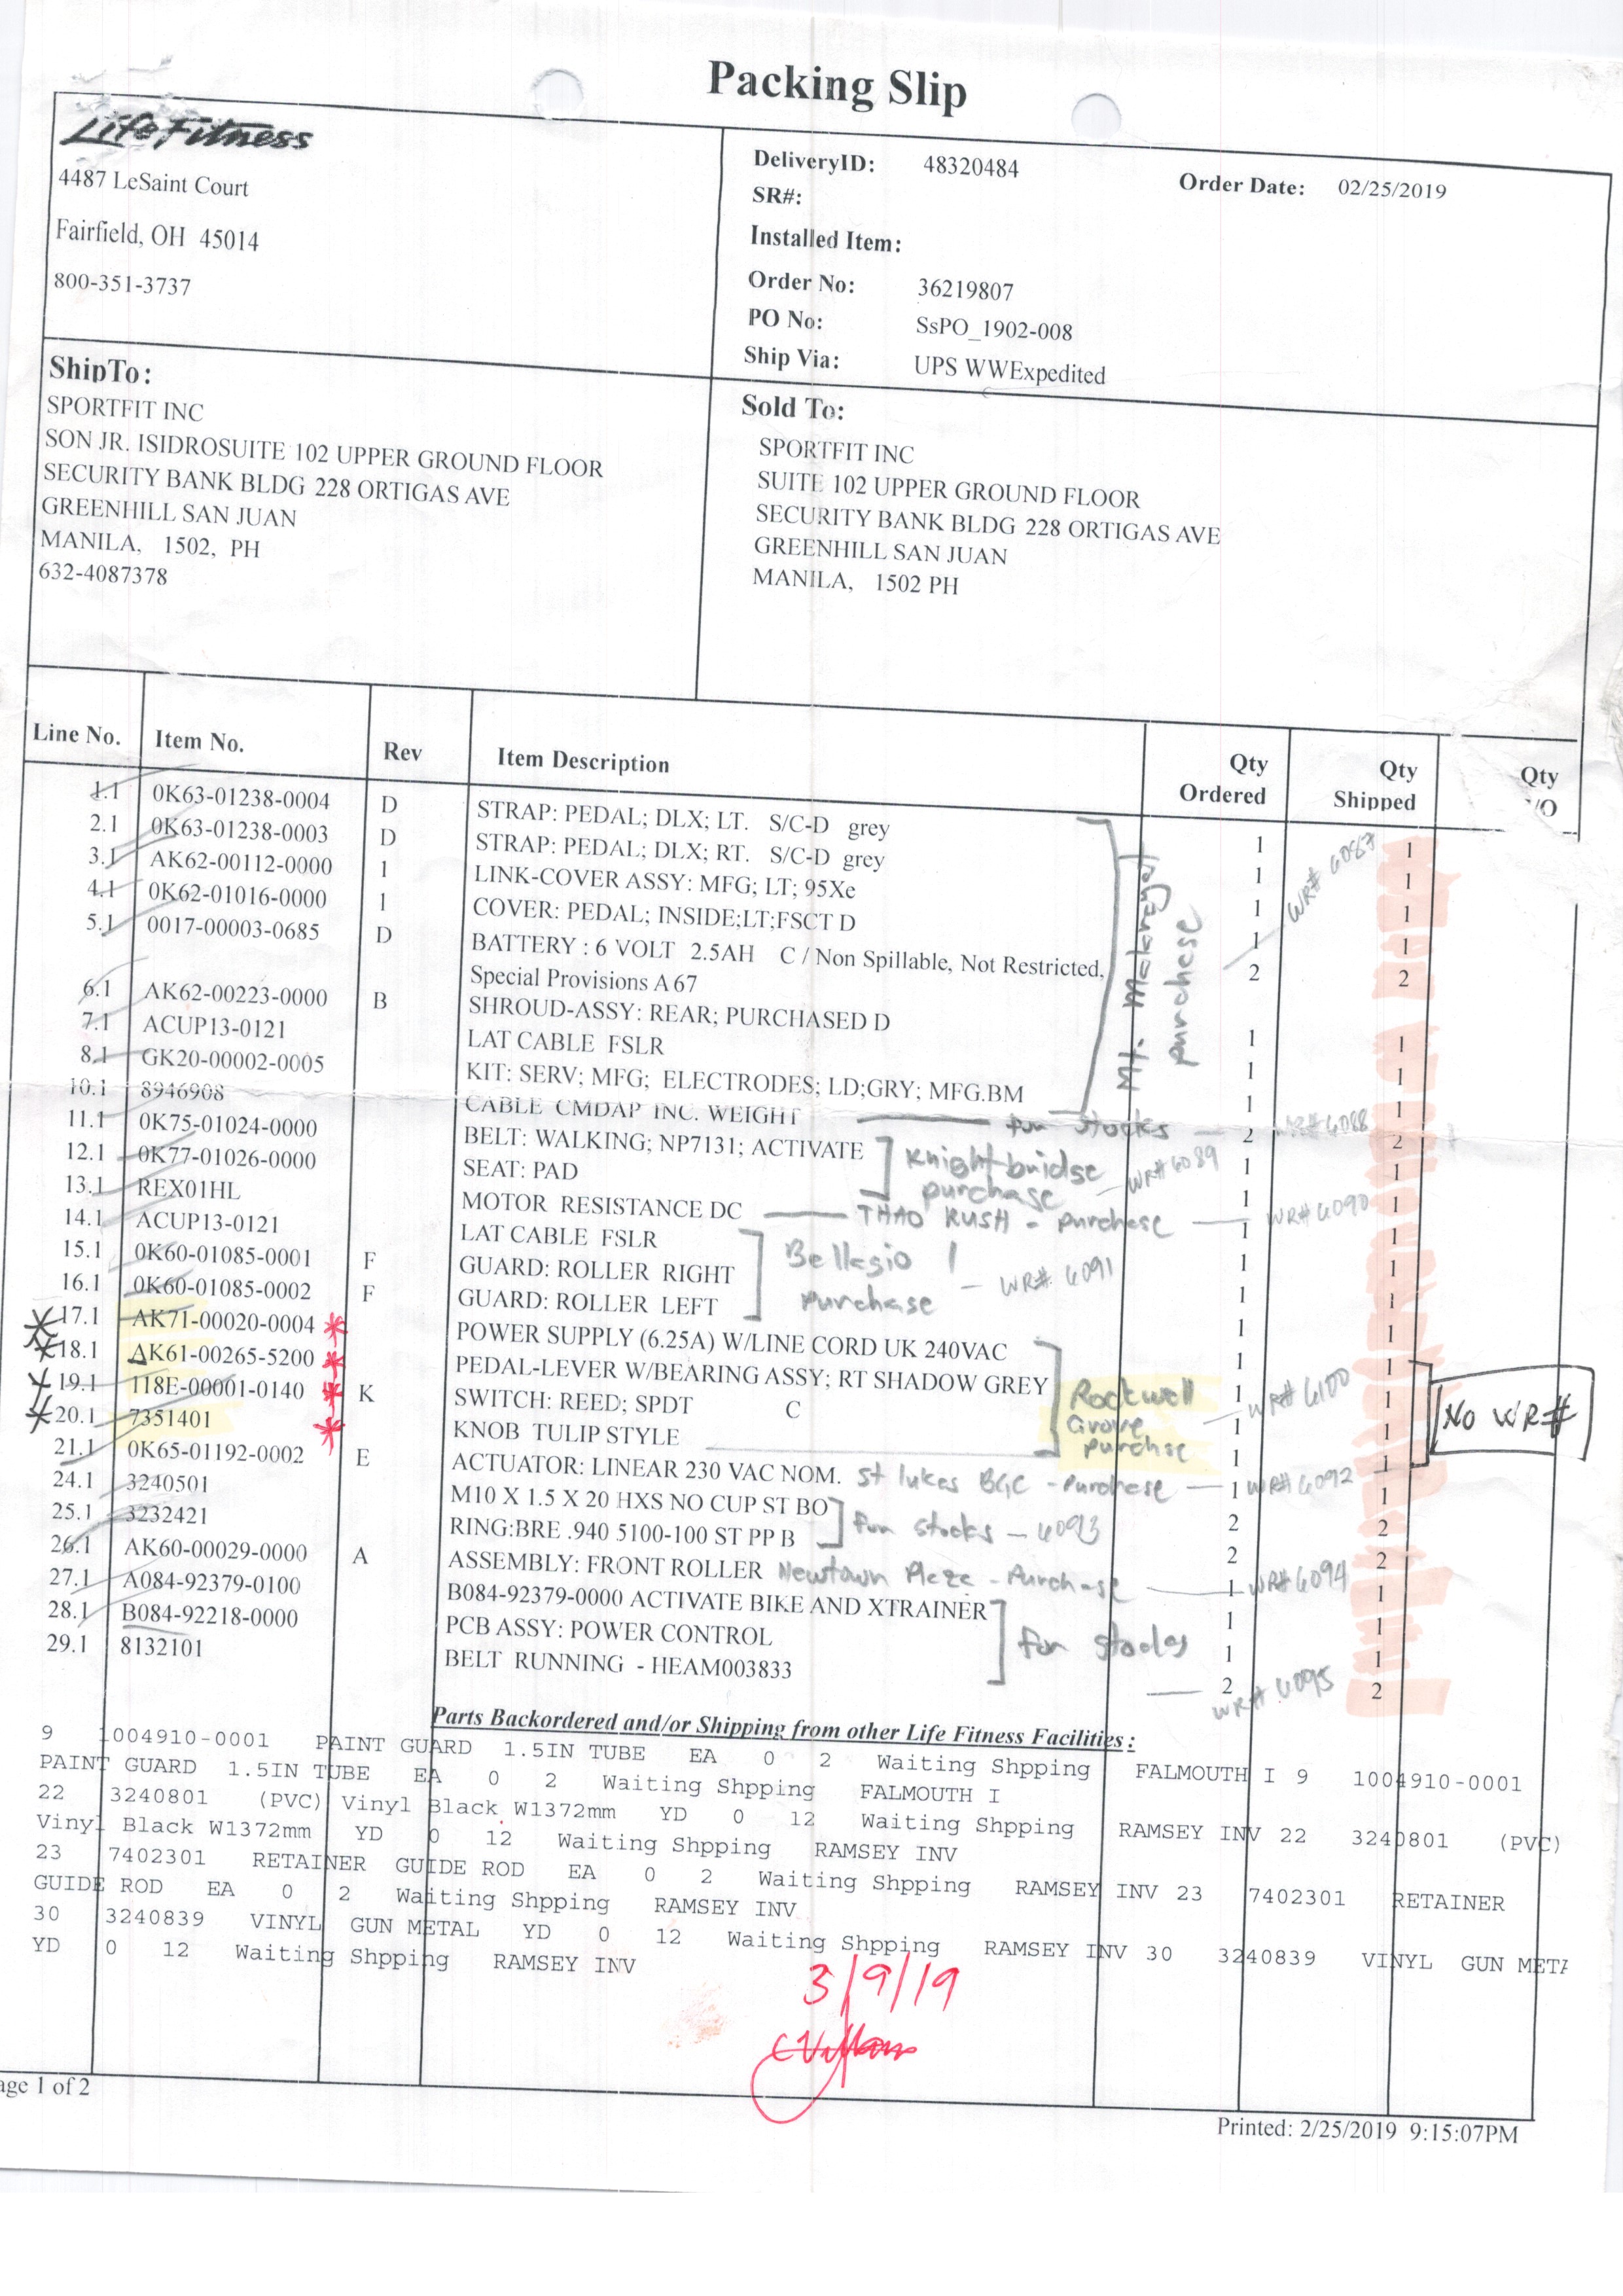 Packing Slip
Life Fitness
4487 LeSaint Court
Fairfield, OH 45014
800-351-3737
DeliveryID: 48320484 Order Date: 02/25/2019
SR#:
Installed Item:
Order No: 36219807
PO No: SsPO_1902-008
Ship Via: UPS WWExpedited
ShipTo:
SPORTFIT INC
SON JR. ISIDROSUITE 102 UPPER GROUND FLOOR
SECURITY BANK BLDG 228 ORTIGAS AVE
GREENHILL SAN JUAN
MANILA, 1502, PH
632-4087378
Sold To:
SPORTFIT INC
SUITE 102 UPPER GROUND FLOOR
SECURITY BANK BLDG 228 ORTIGAS AVE
GREENHILL SAN JUAN
MANILA, 1502 PH
Line No. Item No. Rev Item Description Qty Ordered Qty Shipped Qty /O
1.1 0K63-01238-0004 D STRAP: PEDAL; DLX; LT. S/C-D grey 1 1
2.1 0K63-01238-0003 D STRAP: PEDAL; DLX; RT. S/C-D grey 1 1
3.1 AK62-00112-0000 1 LINK-COVER ASSY: MFG; LT; 95Xe 1 1
4.1 0K62-01016-0000 1 COVER: PEDAL; INSIDE;LT;FSCT D 1 1
5.1 0017-00003-0685 D BATTERY : 6 VOLT 2.5AH C / Non Spillable, Not Restricted, 2 2
Special Provisions A 67
6.1 AK62-00223-0000 B SHROUD-ASSY: REAR; PURCHASED D 1 1
7.1 ACUP13-0121 LAT CABLE FSLR 1 1
8.1 GK20-00002-0005 KIT: SERV; MFG; ELECTRODES; LD;GRY; MFG.BM 1 1
Mt. purchase WR# 6087
10.1 8946908 CABLE CMDAP INC. WEIGHT for stocks WR# 6088 2 2
11.1 0K75-01024-0000 BELT: WALKING; NP7131; ACTIVATE 1 1
12.1 0K77-01026-0000 SEAT: PAD 1 1
Knightbridge purchase - WR# 6089
13.1 REX01HL MOTOR RESISTANCE DC THAO RUSH - purchase WR# 6090 1 1
14.1 ACUP13-0121 LAT CABLE FSLR 1 1
15.1 0K60-01085-0001 F GUARD: ROLLER RIGHT 1 1
16.1 0K60-01085-0002 F GUARD: ROLLER LEFT 1 1
Bellagio 1 purchase - WR# 6091
17.1 AK71-00020-0004 POWER SUPPLY (6.25A) W/LINE CORD UK 240VAC 1 1
18.1 AK61-00265-5200 PEDAL-LEVER W/BEARING ASSY; RT SHADOW GREY 1 1
19.1 118E-00001-0140 K SWITCH: REED; SPDT C 1 1
20.1 7351401 KNOB TULIP STYLE 1 1
Rockwell Grove purchse - WR# 6100
NO WR#
21.1 0K65-01192-0002 E ACTUATOR: LINEAR 230 VAC NOM. St lukes BGC - purchase WR# 6092 1 1
24.1 3240501 M10 X 1.5 X 20 HXS NO CUP ST BO 2 2
25.1 3232421 RING:BRE .940 5100-100 ST PP B 2 2
for stocks - 6093
26.1 AK60-00029-0000 A ASSEMBLY: FRONT ROLLER Newtown Plaza - Purchase WR# 6094 1 1
27.1 A084-92379-0100 B084-92379-0000 ACTIVATE BIKE AND XTRAINER 1 1
28.1 B084-92218-0000 PCB ASSY: POWER CONTROL 1 1
29.1 8132101 BELT RUNNING - HEAM003833 2 2
for stocks WR# 6095
Parts Backordered and/or Shipping from other Life Fitness Facilities :
9 1004910-0001 PAINT GUARD 1.5IN TUBE EA 0 2 Waiting Shpping FALMOUTH I 9 1004910-0001
PAINT GUARD 1.5IN TUBE EA 0 2 Waiting Shpping FALMOUTH I
22 3240801 (PVC) Vinyl Black W1372mm YD 0 12 Waiting Shpping RAMSEY INV 22 3240801 (PVC)
Vinyl Black W1372mm YD 0 12 Waiting Shpping RAMSEY INV
23 7402301 RETAINER GUIDE ROD EA 0 2 Waiting Shpping RAMSEY INV 23 7402301 RETAINER
GUIDE ROD EA 0 2 Waiting Shpping RAMSEY INV
30 3240839 VINYL GUN METAL YD 0 12 Waiting Shpping RAMSEY INV 30 3240839 VINYL GUN META
YD 0 12 Waiting Shpping RAMSEY INV
3/9/19
age 1 of 2
Printed: 2/25/2019 9:15:07PM